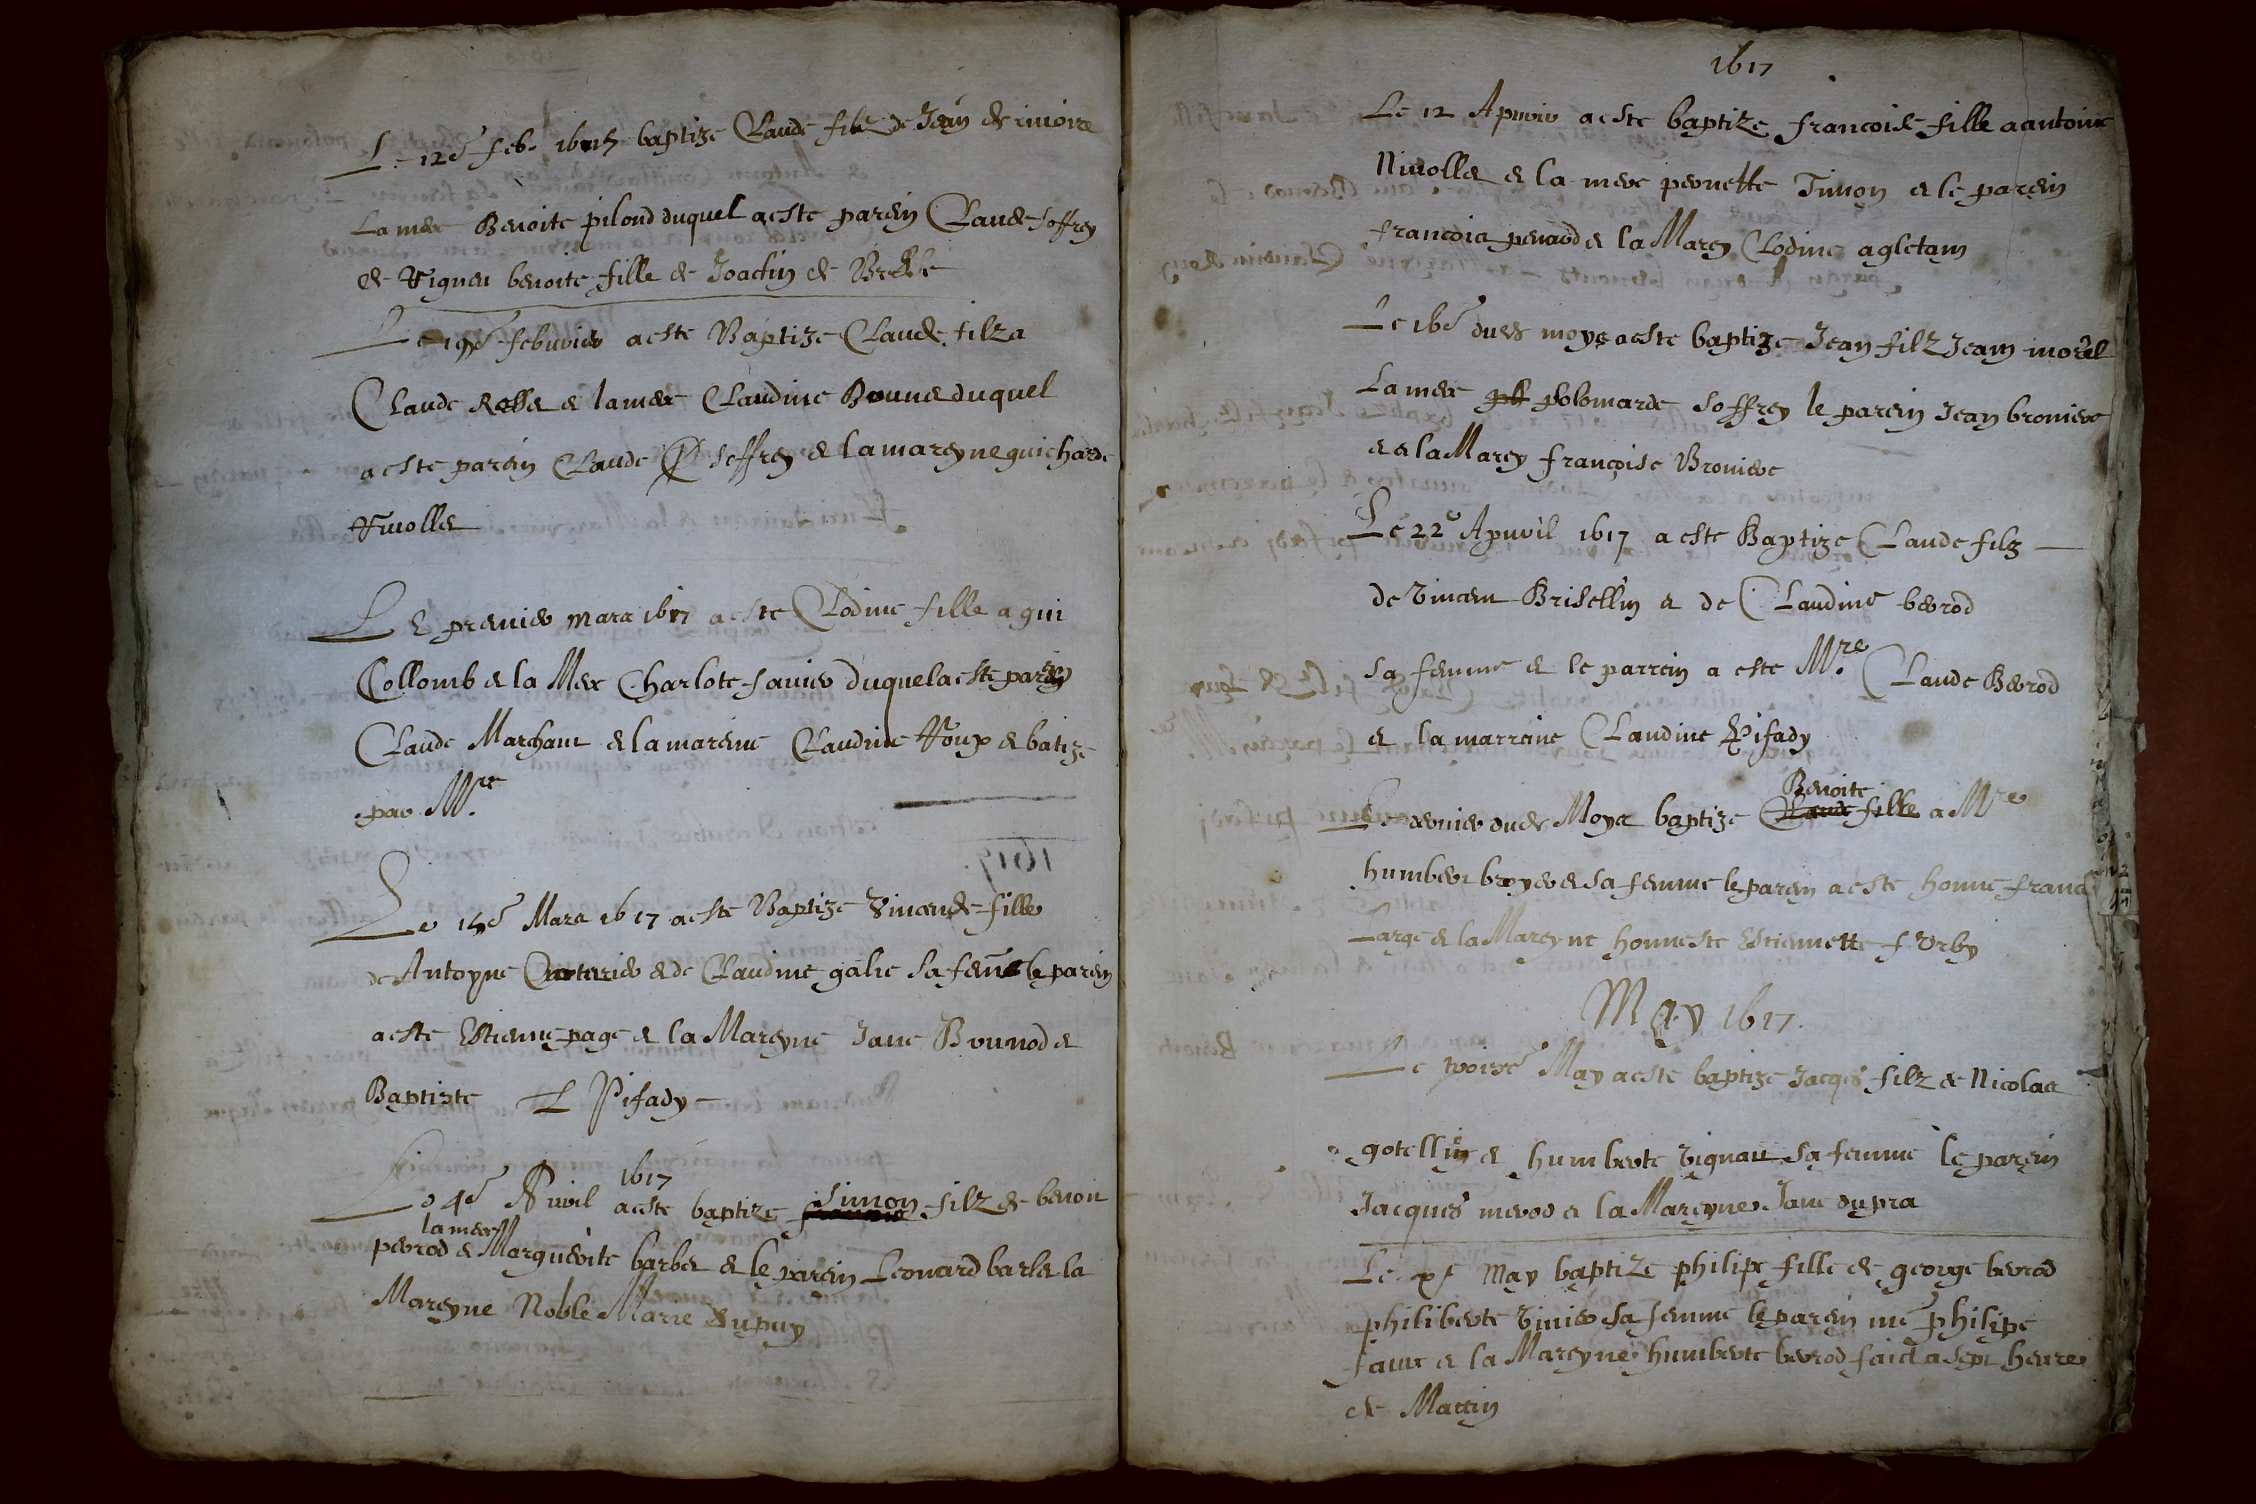 Le 12e feb. 1617 baptize Claude filz de Jean de
La mere Benoite pilond duquel a este parein Claude Soffrey
benoite fille de Joachin de
Le 19e febuvier a este Baptize Claude filz a
Claude & la mere Claudine duquel
a este parein Claude Soffrey & la mareyne guicharde
Le premier mars 1617 a este Clodine fille a gui
Collomb & la Mere Charlote favier duquel a este parein
Claude Marchant & la mareine Claudine & batize
par Mre
Le 15e Mars 1617 a este Baptize Vincende fille
de Antoyne & de Claudine galie sa feme le parein
a este Estienne page & la Mareyne Jane Bonnod &
Baptizte Pifady
1617
Le 4e Auvil a este baptize Simon filz de benoit
la mere
perrod & Marguerite barbet & le parein Leonard barlet la
Mareyne Noble Marie Dupuy
1617
Le 12 Apvriv a este baptize francoise fille a antoine
Nivollet & la mere pernette Timon & le parein
francois penaod & la Marey Clodine agletam
Le 16e dudt moys a este baptize Jean filz Jean morel
La mere polomarde Soffrey le parein Jean broniere
& a la Marey françoise Broniere
Le 22e Apuvil 1617 a este Baptize Claude filz
de Vincent Brisellin & de Claudine berrod
sa femme & le parrein a este Mre Claude Berrod
& la marreine Claudine Pifady
Benoite
Le dernier dudt Moys baptize Claude fille a Mre
humbert broyer & sa femme le parein a este home franc
Large & la Mareyne honneste Estiennette
May 1617.
Le troisе May a este baptize Jacques filz de Nicolas
gotellin & humberte vignau sa femme le parein
Jacques & la Mareyne Jane dupra
Le May baptize philipe fille de george berrod
philiberte sa femme le parein me philipe
favre & la Mareyne humberte berrod faict a sept heures
de Mattin